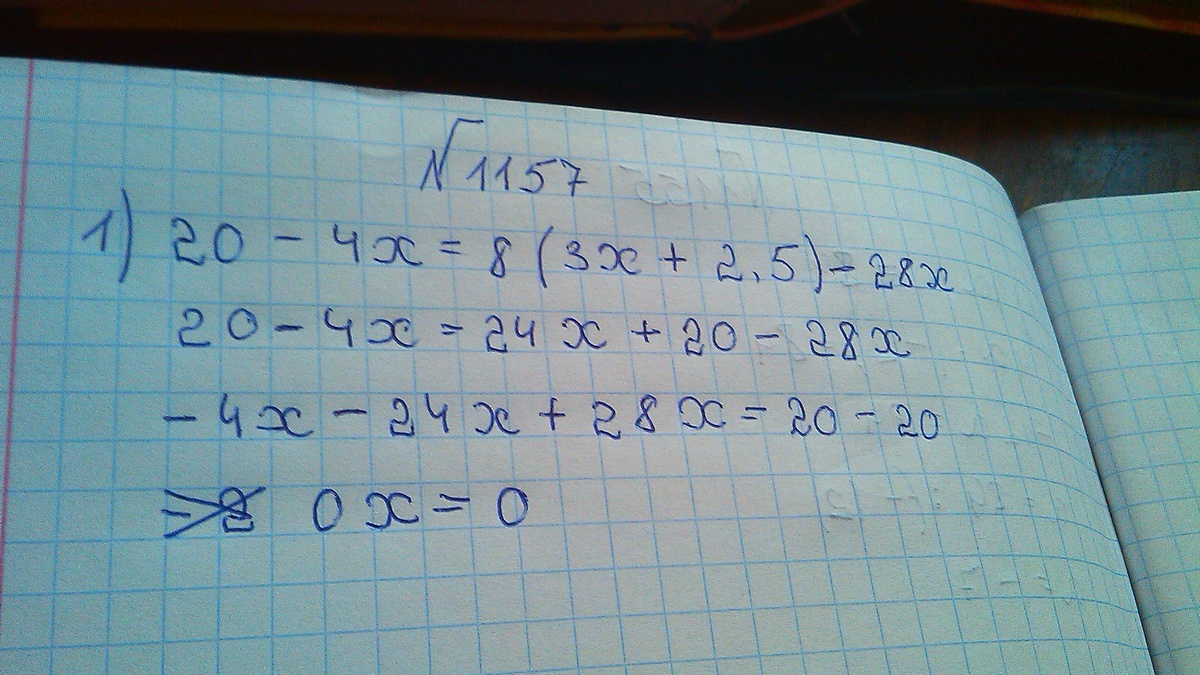 №1157
1) 20 - 4x = 8(3x + 2,5) - 28x
20 - 4x = 24x + 20 - 28x
- 4x - 24x + 28x = 20 - 20
0x = 0